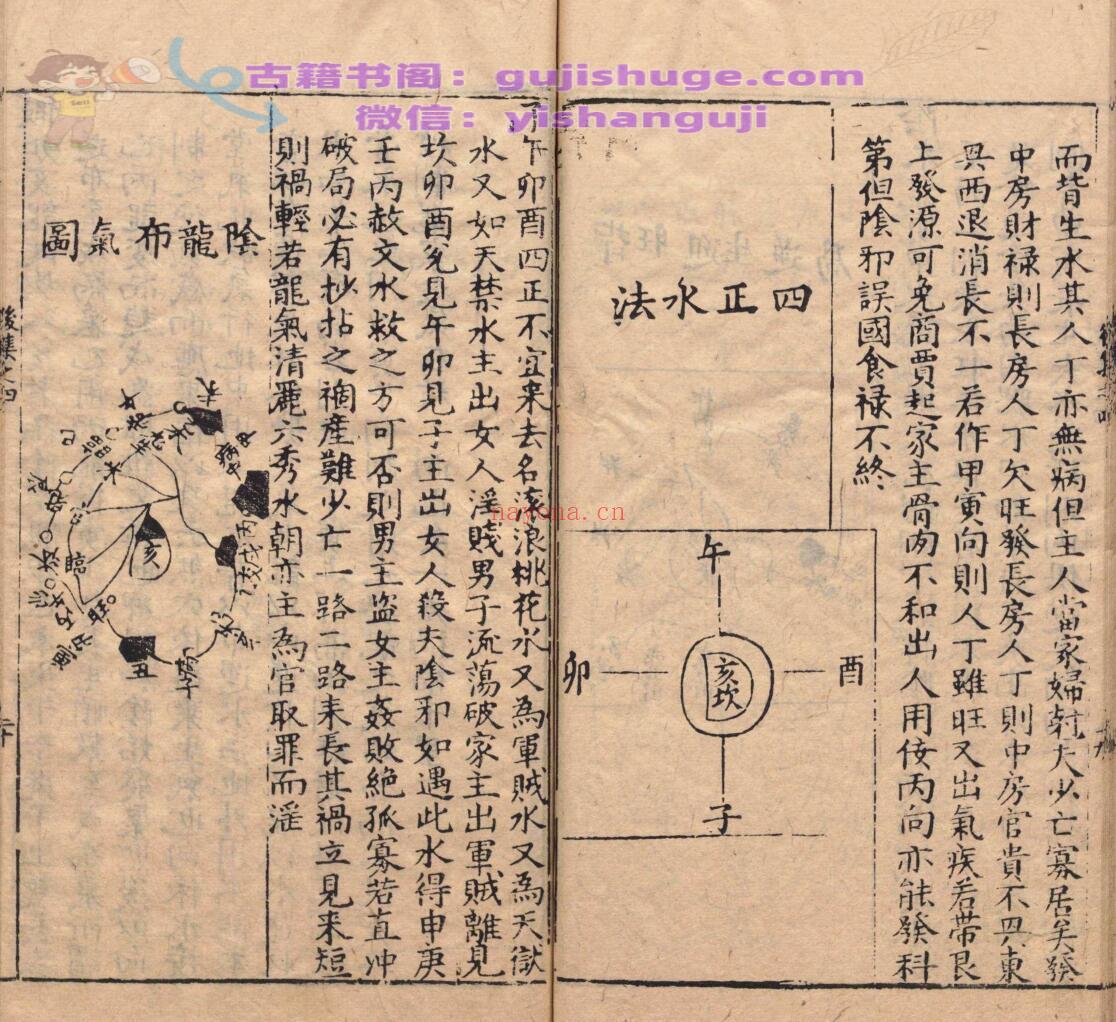 古籍书阁：gujishuge.com
微信：yishanguji
nayona.cn
而皆生水其人丁亦無病但主人當家婦尅夫少亡寡居矣發
中房財禄則長房人丁欠旺發長房人丁則中房官貴不巽東
巽西退消長不一若作甲寅向則人丁雖旺又出氣疾若帶艮
上發源可免商賈起家主骨肉不和出人用侫丙向亦能發科
第但陰邪誤國食禄不終
四正水法
午
酉
亥坎
卯
子
子午卯酉四正不宜来去名滚浪桃花水又為軍賊水又為天獄
水又如天禁水主出女人淫賤男子流蕩破家主出軍賊離見
坎卯酉兊見午卯見子主出女人殺夫陰邪如遇此水得申庚
壬丙赦文水救之方可否則男主盜女主姦敗絶孤寡若直冲
破局必有抄拈之禍産難少亡一路二路来長其禍立見来短
則禍輕若龍氣清麗六秀水朝亦主為官取罪而淫
陰龍布氣圖
亥
丑
巳
丙
臨
旺
病
後集之四